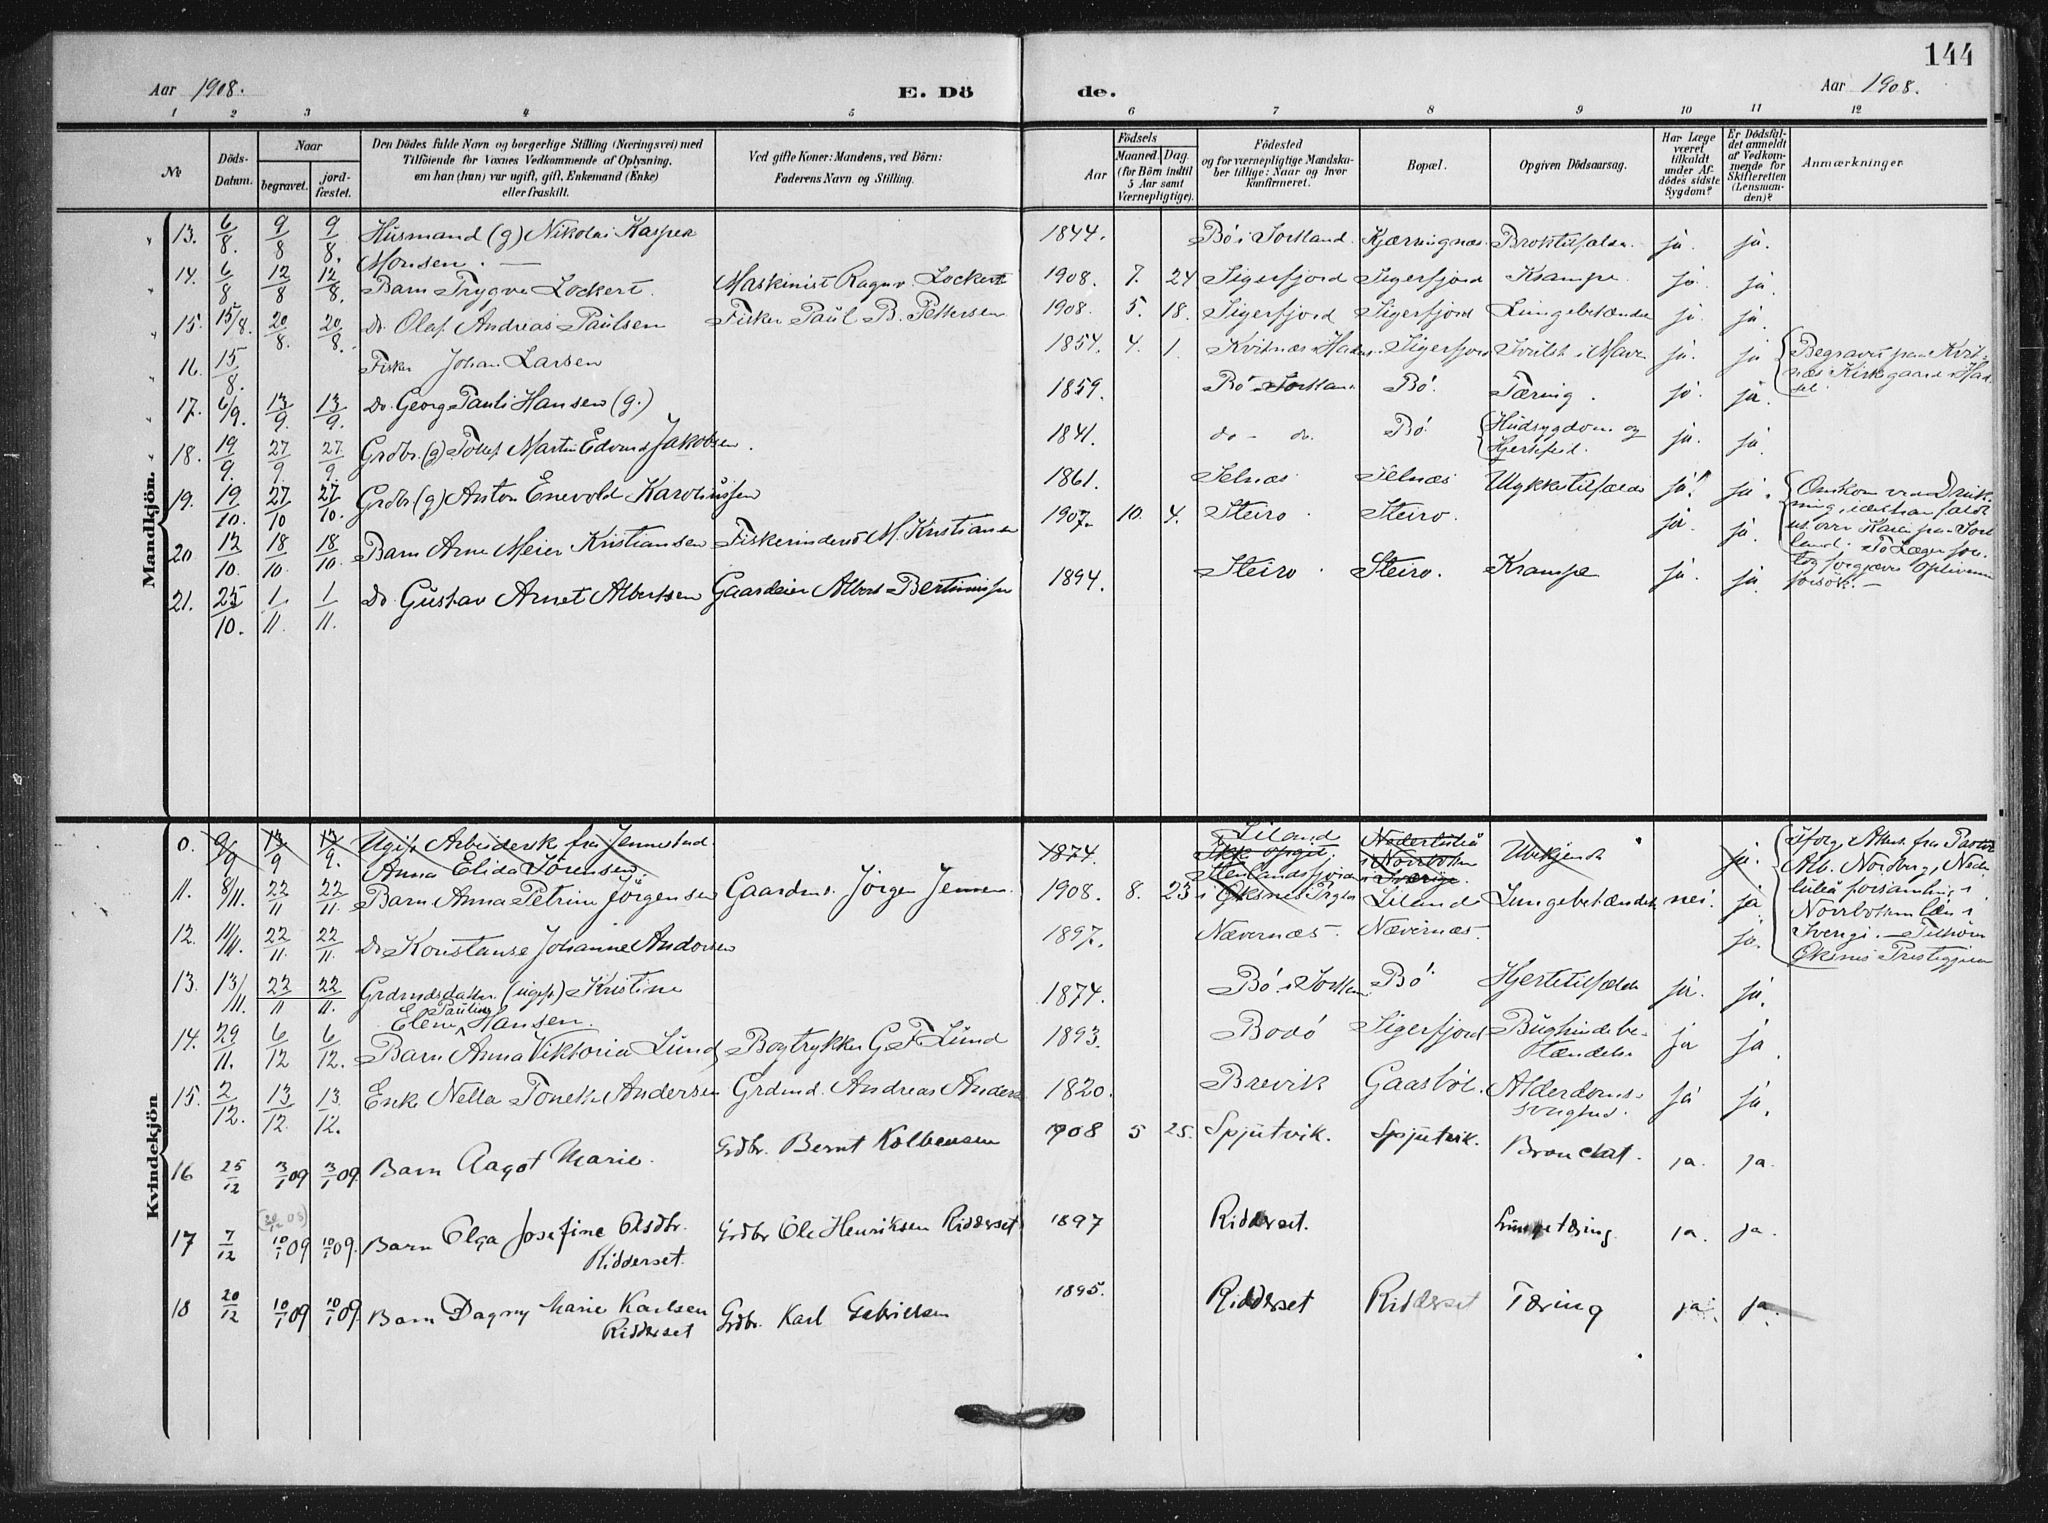 144
Aar 1908. E. Dö de. Aar 1908.
1 2 3 4 5 6 7 8 9 10 11 12
No
Döds-Datum.
Naar
begravet.
jord-fæstet.
Den Dödes fulde Navn og borgerlige Stilling (Næringsvei) med
Tilföiende for Voxnes Vedkommende af Oplysning,
om han (hun) var ugift, gift, Enkemand (Enke)
eller fraskilt.
Ved gifte Koner: Mandens, ved Börn:
Faderens Navn og Stilling.
Födsels
Aar
Maaned. Dag.
(for Börn indtil
5 Aar samt
Værnepligtige).
Födested
og for værnepligtige Mandska-
ber tillige: Naar og hvor
konfirmeret.
Bopæl.
Opgiven Dödsaarsag.
Har Læge
været
tilkaldt
under Af-
dödes sidste
Sygdom?
Er Dödsfal-
det anmeldt
af Vedkom-
mende for
Skifteretten
(Lensman-
den)?
Anmærkninger
Mandkjön.
13. 6/8. 9/8 9/8. Husmand (g) Nikolai Kasper 1844. Bö i Sortland. Kjærringnæs ja. ja.
Monsen.
14. 6/8 12/8 12/8. Barn Trygve Lockert. Maskinist Ragnv. Lockert 1908. 7. 24 Sigerfjord Sigerfjord Krampe ja. ja.
15. 15/8. 20/8. 20/8. Do Olaf Andreas Paulsen Fisker Paul B. Pettersen 1908. 5. 18. Sigerfjord Sigerfjord Lungebetændelse ja. ja.
16. 15/8. Fisker Johan Larsen 1854. 4. 1. Kvitnæs i Hadsel. Sigerfjord Svulst i Maven ja. ja
Begravet paa Kvit-
næs Kirkegaard i Had-
sel
17. 6/9. 13/9 13/9. Do. Georg Pauli Hansen (g.) 1859. Bö i Sortland Bö. Tæring. ja. ja.
18. 19/9. 27/9. 27/9. Grdbr. (g) Tollef Martin Edvard Jakobsen. 1841. do - do. Bö. Hudsygdom og ja. ja.
Hjertefeil.
19. 19/10. 27/10 27/10. Grdbr (g) Anton Enevold Karolinssen 1861. Selnæs. Selnæs Ulykkestilfælde ja! ja.
Omkom ved Druk-
ning, idet han faldt
ut over Kaien paa Sort-
land. To Læger for-
tog forgjæves oplivnings
forsök. —
20. 12/10. 18/10. 18/10. Barn Arne Meier Kristiansen Fisker M. Kristiansen 1907. 10. 4. Steiro. Steiro. ja. ja.
21. 25/10. 1/11. 1/11. Do Gustav Arnet Albertsen Gaardeier Albert Bertinussen 1894. Steiro. Steiro. Krampe ja. ja.
Kvindekjön
0. 9/9 13/9 13/9. Ugift Arbeiderske fra Jennestad 1874. Ikke opgit. Nederluleå Ubekjendt ja.
Anna Elida Sörensen. i Norrbotten i Sverige.
Ifölg. Attest fra Pastor
Alb. Nordberg, Neder-
luleå forsamling i
Norrbottens län i
Sverige. — Tilhörer
Öksnes Prestegjeld
11. 8/11. 22/11 22/11. Barn Anna Petrine Jörgensen Gaardm. Jörgen Jensen. 1908. 8. 23 Liland Liland Lungebetændelse nei. ja
i Öksnes Prgld.
12. 11/11. 22/11. 22/11. Do Konstanse Johanne Andorsen 1897. Nævernæs. Nævernæs. ja.
13. 13/11. 22/11 22/11. Grdmdsdatter (ugift) Kristine 1874. Bö i Sortland Bö Hjertetilfælde ja. ja.
Elene Pauline Hansen.
14. 29/11. 6/12 6/12. Barn Anna Viktoria Lund Bogtrykker G F Lund 1893. Bodö Sigerfjord Bughindebe- ja ja.
tændelse
15. 2/12. 13/12. 13/12. Enke Nella Andersen Grdmd. Andreas Anders 1820. Brevik Gaasböl. Alderdoms- ja ja.
svaghed.
16 25/12 3/1 09 3/1 09. Barn Aagot Marie. Grdbr. Bernt Kolbensen 1908 5 25. Spjutvik. Spjutvik. Bronchit. ja. ja.
(20/12 08)
17 7/12 10/1 09 10/1 09. Barn Olga Josefine Olsdtr. Grdbr Ole Henriksen Ridderset 1897 Ridderset. Lungetæring. ja. ja.
Ridderset.
18 20/12 10/1 09 10/1 09. Barn Dagny Marie Karlsen Grdbr. Karl Gabrielsen 1895. Ridderset Ridderset Tæring ja. ja.
Ridderset